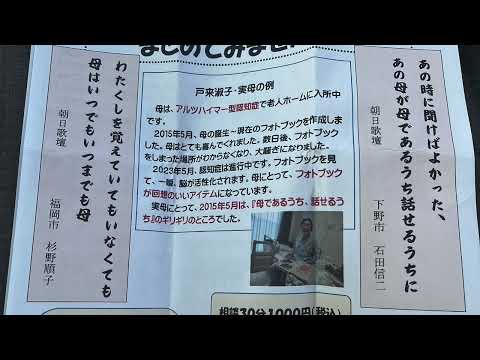 まとめてみませんか
あの時に聞けばよかった、
あの母が母であるうち話せるうちに
朝日歌壇
下野市 石田信二
戸来淑子・実母の例
母は、アルツハイマー型認知症で老人ホームに入所中
です。
2015年5月、母の誕生~現在のフォトブックを作成しま
した。母はとても喜んでくれました。数日後、フォトブック
をしまった場所がわからなくなり、大騒ぎになりました。
2023年5月、認知症は進行中です。フォトブックを見
て、一瞬、脳が活性化されます。母にとって、フォトブック
が回想のいいアイテムになっています。
実母にとって、2015年5月は、『母であるうち、話せるう
ち』のギリギリのところでした。
わたくしを覚えていてもいなくても
母はいつでもいつまでも母
朝日歌壇
福岡市 杉野順子
相談30分1000円(税込)